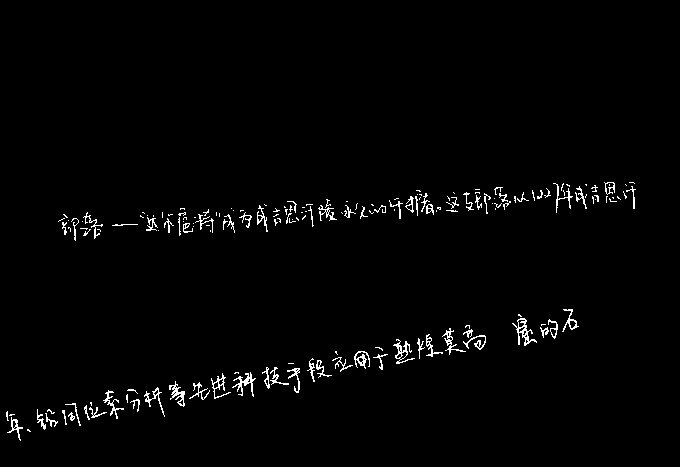 部落——“达尔扈特”成为成吉思汗陵永久的守护者。这支部落从1227年成吉思汗
年、铅同位素分析等先进科技手段应用于敦煌莫高 窟的石